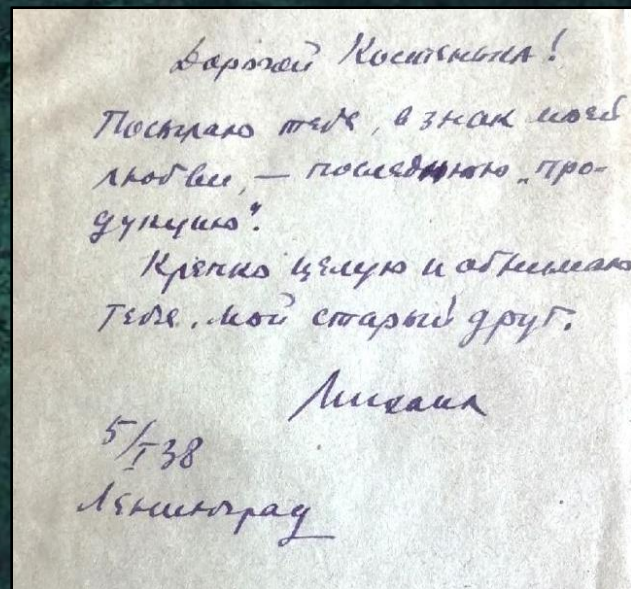 Дорогой Костенька!
Посылаю тебе, в знак моей
любви, — последнюю „про-
дукцию“.
Крепко целую и обнимаю
тебя, мой старый друг.
Михаил
5/I 38
Ленинград